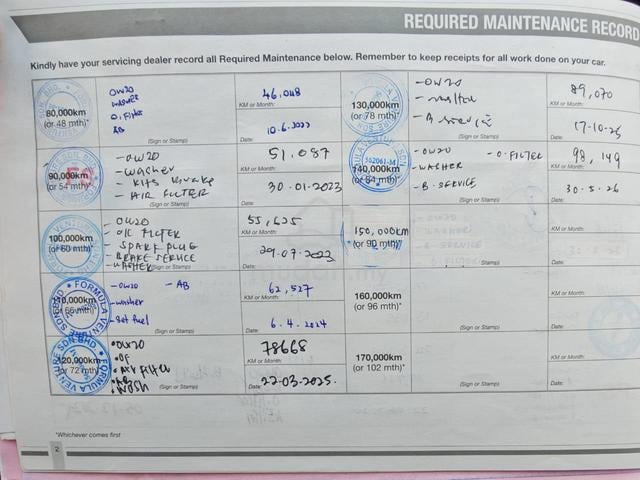 REQUIRED MAINTENANCE RECORD
Kindly have your servicing dealer record all Required Maintenance below. Remember to keep receipts for all work done on your car.
80,000km
(or 48 mth)*
OW20
WASHER
O.Filter
AB
(Sign or Stamp)
46,048
KM or Month:
10.6.2022
Date:
90,000km
(or 54 mth)*
-OW20
-washer
- AIR FILTER
(Sign or Stamp)
51,087
KM or Month:
30.01.2023
Date:
100,000km
(or 60 mth)*
-OW20
- OIL FILTER
- SPARK PLUG
- BRAKE SERVICE
-WASHER
(Sign or Stamp)
55,625
KM or Month:
29.07.2023
Date:
110,000km
(or 66 mth)*
-OW20 - AB
-washer
(Sign or Stamp)
62,527
KM or Month:
6.4.2024
Date:
120,000km
(or 72 mth)*
•OW20
•OF
•AIR FILTER
•AB
(Sign or Stamp)
78668
KM or Month:
22.03.2025.
Date:
130,000km
(or 78 mth)*
-OW20
(Sign or Stamp)
89,070
KM or Month:
Date:
140,000km
(or 84 mth)*
-OW20 - O.FILTER
-WASHER
-B.SERVICE
(Sign or Stamp)
98,149
KM or Month:
Date:
150,000km
(or 90 mth)*
(Sign or Stamp)
KM or Month:
Date:
160,000km
(or 96 mth)*
(Sign or Stamp)
KM or Month:
Date:
170,000km
(or 102 mth)*
(Sign or Stamp)
KM or Month:
Date:
*Whichever comes first
2